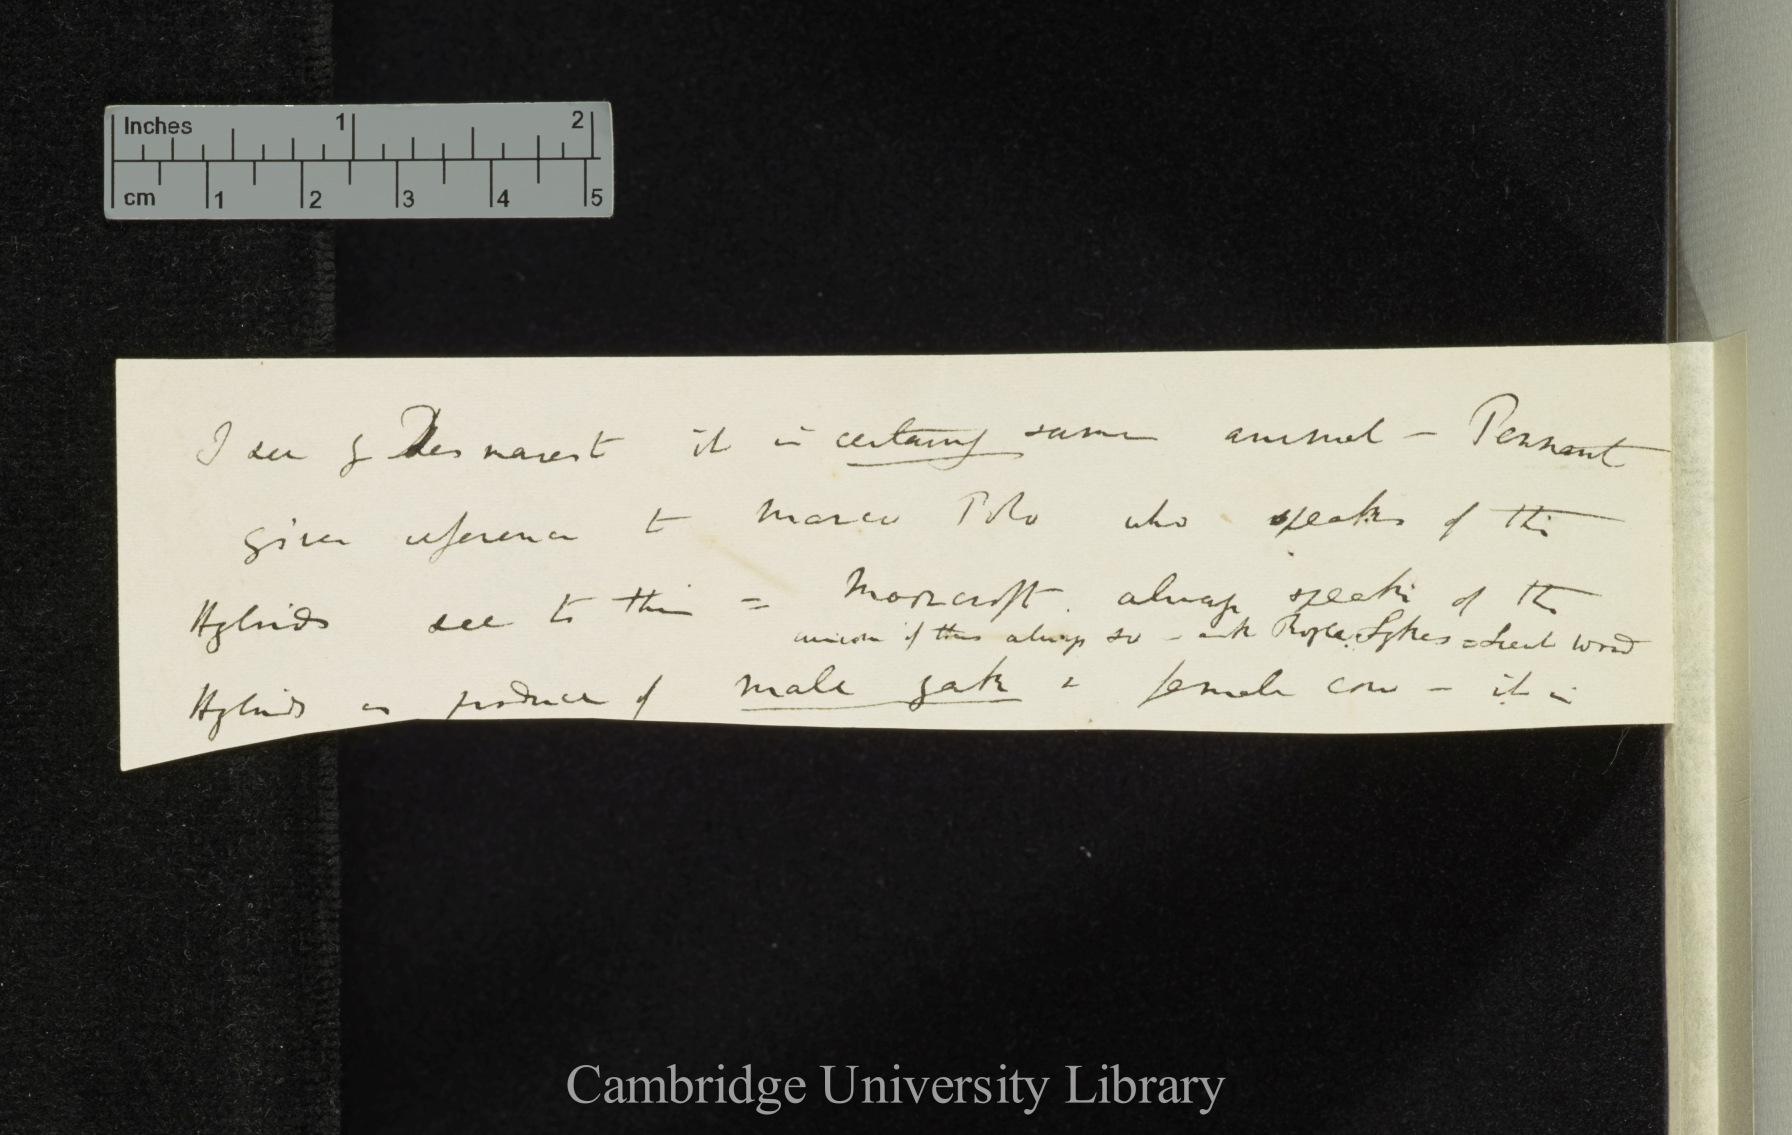 Inches 1 2
cm 1 2 3 4 5
I see by Desmarest it is certainly same animal — Pennant
gives reference to Marco Polo who speaks of this
Hybrids see to this = Moorcroft always speaks of the
curious if this always so — ask Royle. Sykes = Lieut Wood
Hybrids as produce of male yak & female cow — it is
Cambridge University Library